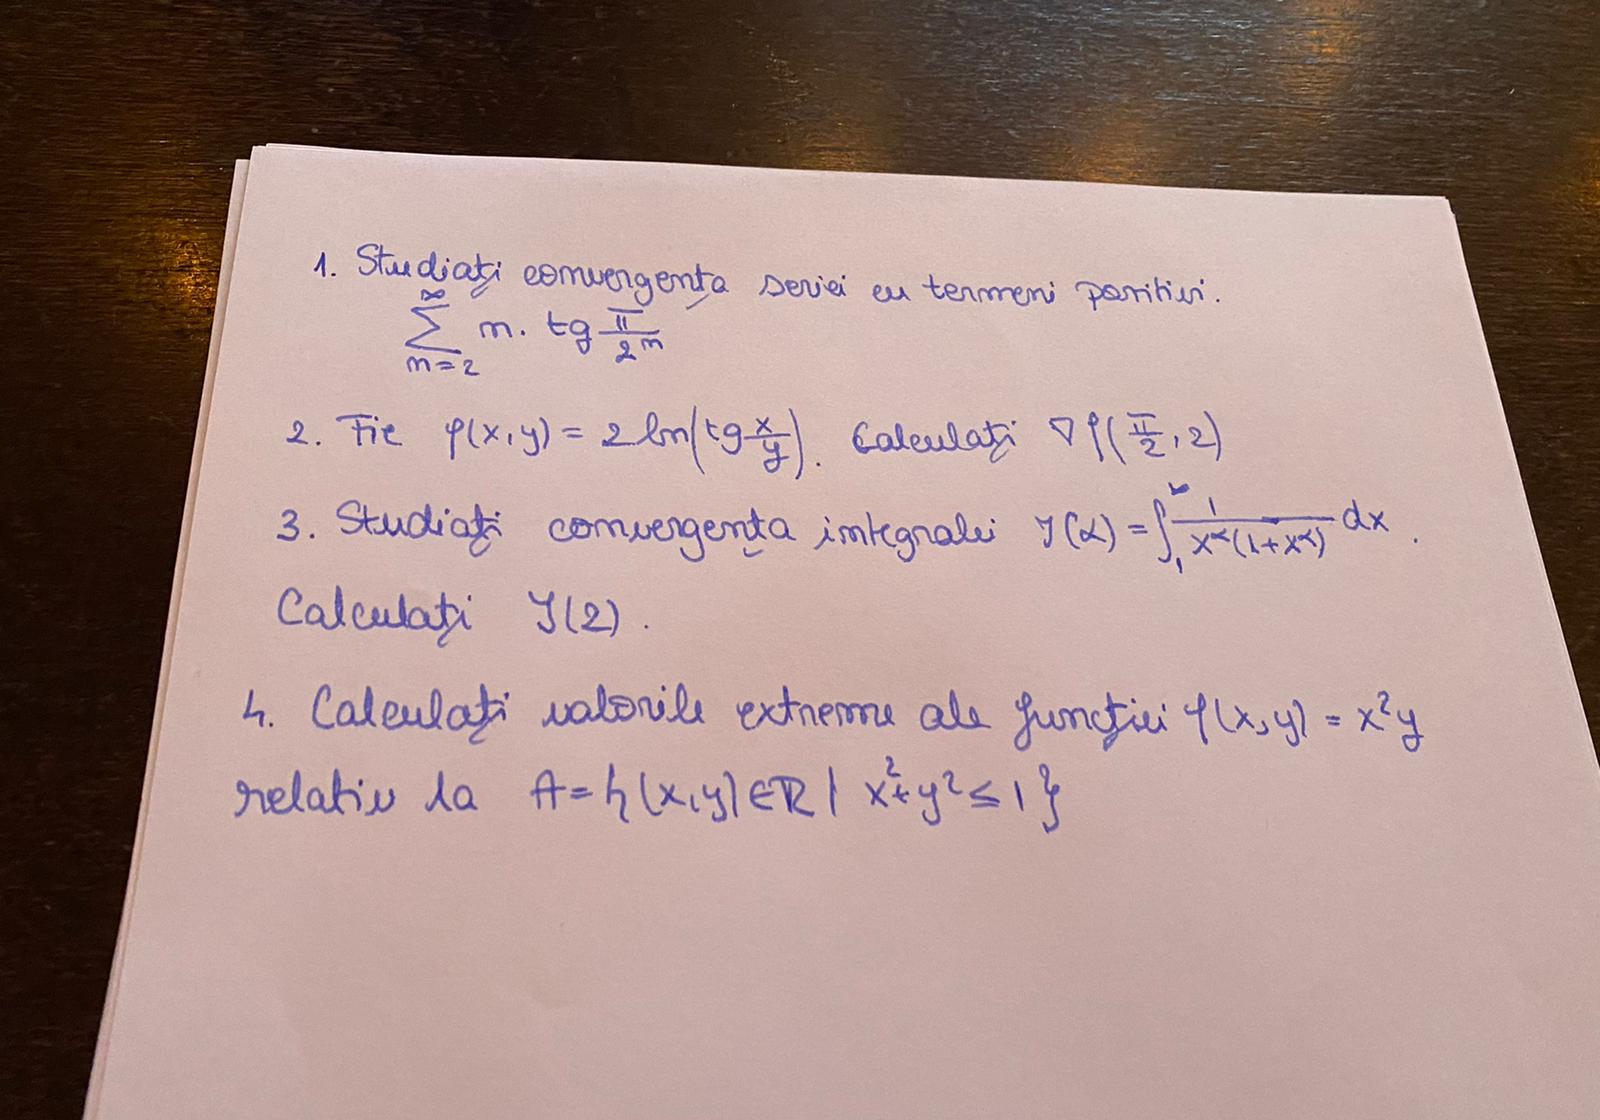 1. Studiați convergența seriei cu termeni pozitivi.
∑_{n=2}^{∞} n. tg π/2^n
2. Fie f(x,y) = 2 ln(tg x/y). Calculați ∇f(π/2, 2)
3. Studiați convergența integralei J(α) = ∫_1^∞ 1/(x^α(1+x^α)) dx.
Calculați J(2).
4. Calculați valorile extreme ale funcției f(x,y) = x²y
relativ la A = {(x,y) ∈ ℝ | x²+y² ≤ 1}